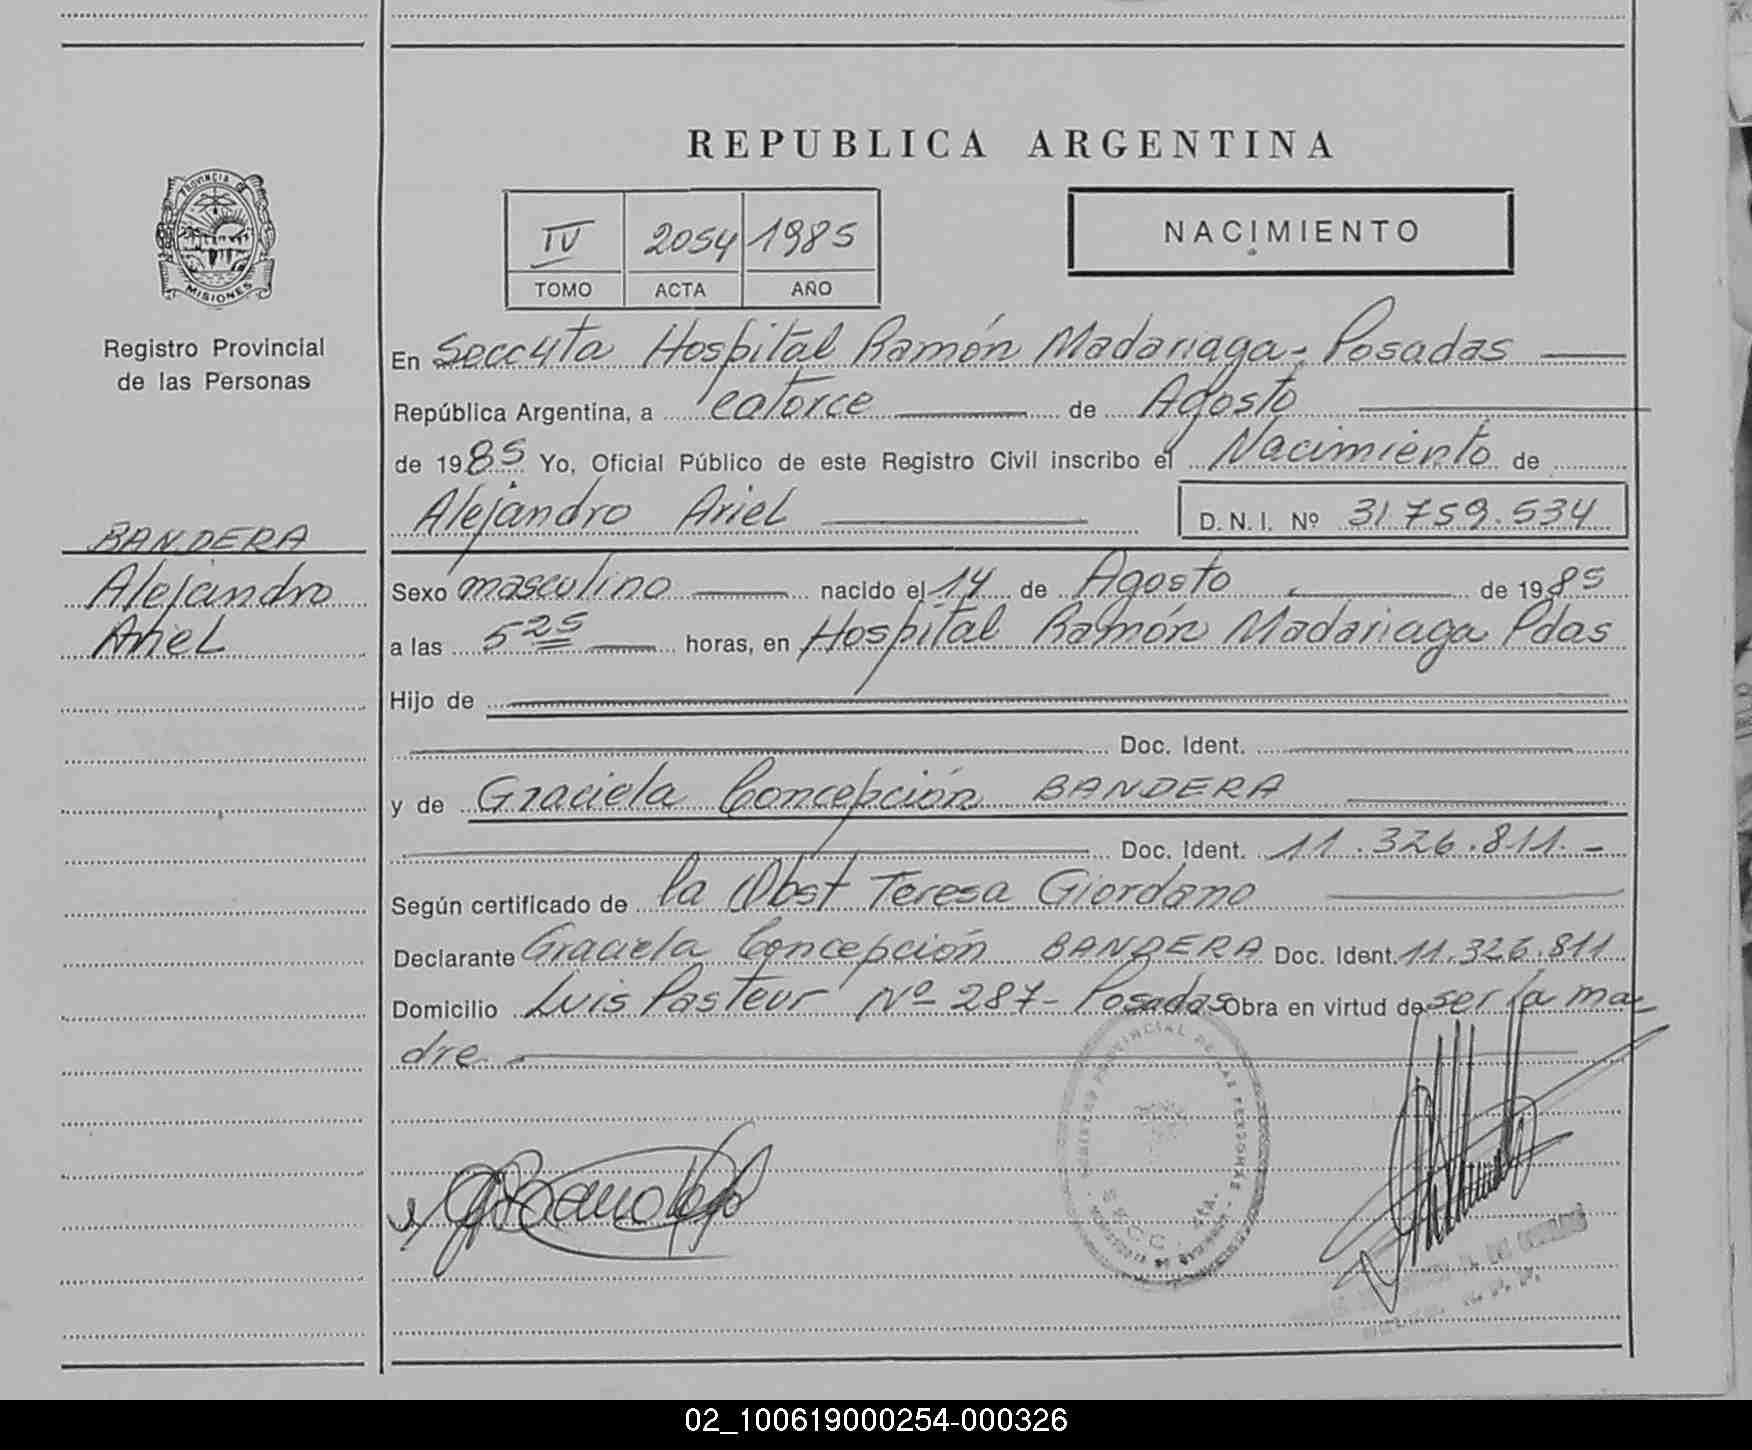 REPUBLICA ARGENTINA
PROVINCIA DE
MISIONES
IV 2054 1985
TOMO ACTA AÑO
NACIMIENTO
Registro Provincial
de las Personas
En Secc 4ta Hospital Ramón Madariaga - Posadas
República Argentina, a catorce de Agosto
de 1985 Yo, Oficial Público de este Registro Civil inscribo el Nacimiento de
Alejandro Ariel D. N. I. Nº 31.759.534
BANDERA
Alejandro
Ariel
Sexo masculino nacido el 14 de Agosto de 1985
a las 5 25 horas, en Hospital Ramón Madariaga Pdas
Hijo de
Doc. Ident.
y de Graciela Concepción BANDERA
Doc. Ident. 11.326.811.-
Según certificado de la Obst Teresa Giordano
Declarante Graciela Concepción BANDERA Doc. Ident. 11.326.811
Domicilio Luis Pasteur Nº 287 - Posadas Obra en virtud de ser la ma-
dre
PROVINCIAL DE LAS PERSONAS
SECC. 4ta.
02_100619000254-000326